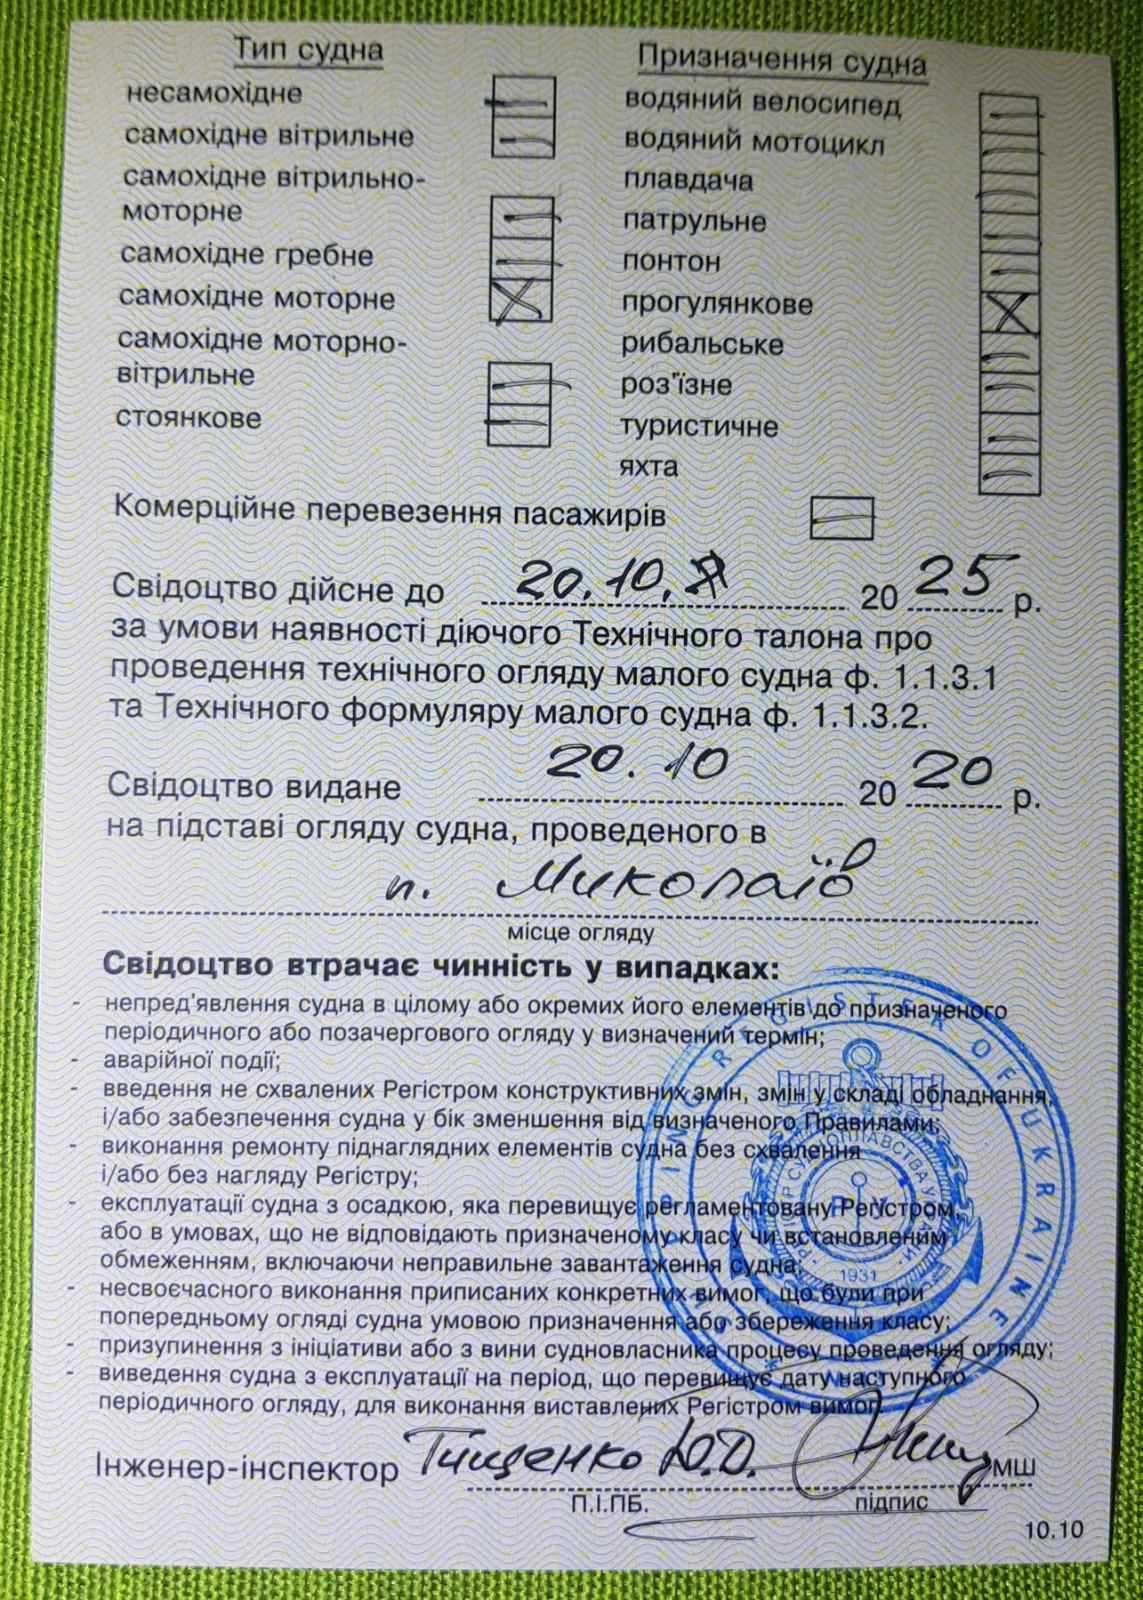 Тип судна
несамохідне
самохідне вітрильне
самохідне вітрильно-
моторне
самохідне гребне
самохідне моторне
самохідне моторно-
вітрильне
стоянкове
Призначення судна
водяний велосипед
водяний мотоцикл
плавдача
патрульне
понтон
прогулянкове
рибальське
роз'їзне
туристичне
яхта
Комерційне перевезення пасажирів
Свідоцтво дійсне до 20.10. 20 25 р.
за умови наявності діючого Технічного талона про
проведення технічного огляду малого судна ф. 1.1.3.1
та Технічного формуляру малого судна ф. 1.1.3.2.
Свідоцтво видане 20.10 20 20 р.
на підставі огляду судна, проведеного в
п. Миколаїв
місце огляду
Свідоцтво втрачає чинність у випадках:
- непред'явлення судна в цілому або окремих його елементів до призначеного
періодичного або позачергового огляду у визначений термін;
- аварійної події;
- введення не схвалених Регістром конструктивних змін, змін у складі обладнання,
і/або забезпечення судна у бік зменшення від визначеного Правилами;
- виконання ремонту піднаглядних елементів судна без схвалення
і/або без нагляду Регістру;
- експлуатації судна з осадкою, яка перевищує регламентовану Регістром,
або в умовах, що не відповідають призначеному класу чи встановленим
обмеженням, включаючи неправильне завантаження судна;
- несвоєчасного виконання приписаних конкретних вимог, що були при
попередньому огляді судна умовою призначення або збереження класу;
- призупинення з ініціативи або з вини судновласника процесу проведення огляду;
- виведення судна з експлуатації на період, що перевищує дату наступного
періодичного огляду, для виконання виставлених Регістром вимог.
SHIPPING REGISTER OF UKRAINE
РЕГІСТР СУДНОПЛАВСТВА УКРАЇНИ
Р У
1931
Інженер-інспектор Тищенко Ю.Д. МШ
П.І.ПБ. підпис
10.10